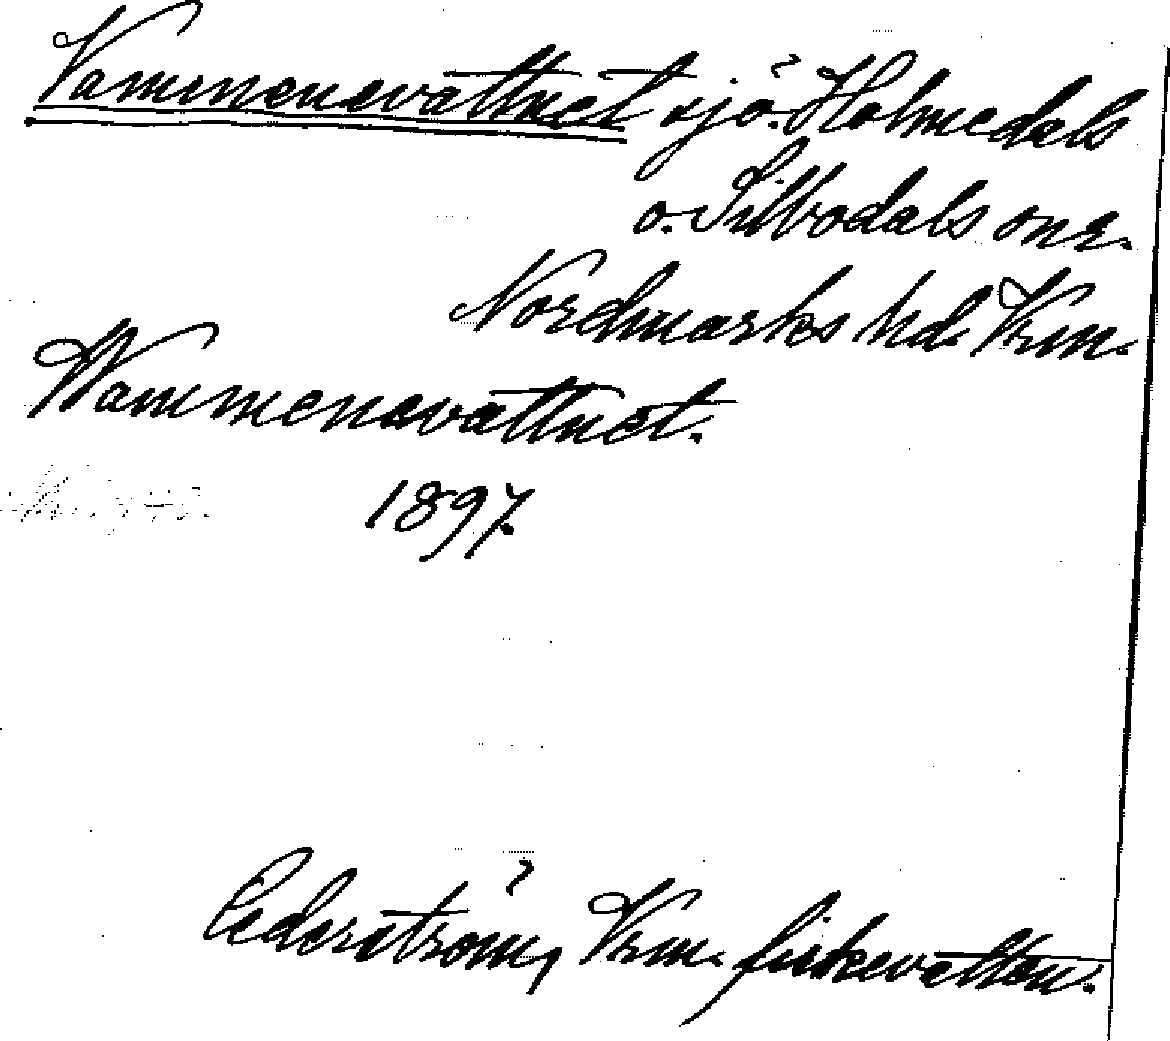 Vammenevattnet sjö. Holmedals
o. Silbodals snr.
Nordmarks hd. Vrm.
Wammenevattnet.
1897.
Cederström, Vrm. fiskevatten.